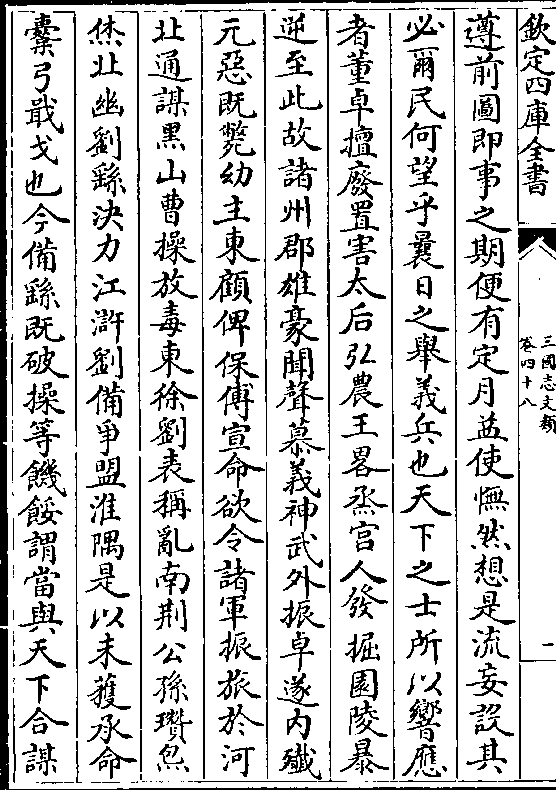 欽定四庫全書
三國志文類
卷四十八
二
遵前圖即事之期便有定月益使憮然想是流妄設其
必爾民何望乎曩日之舉義兵也天下之士所以響應
者董卓擅廢置害太后弘農王畧烝宫人發掘園陵暴
逆至此故諸州郡雄豪聞聲慕義神武外振卓遂内殲
元惡既斃幼主東顧俾保傅宣命欲令諸軍振旅於河
北通謀黑山曹操放毒東徐劉表稱亂南荆公孫瓚炰
烋北幽劉繇決力江滸劉備爭盟淮隅是以未獲承命
櫜弓戢戈也今備繇既破操等饑餒謂當與天下合謀